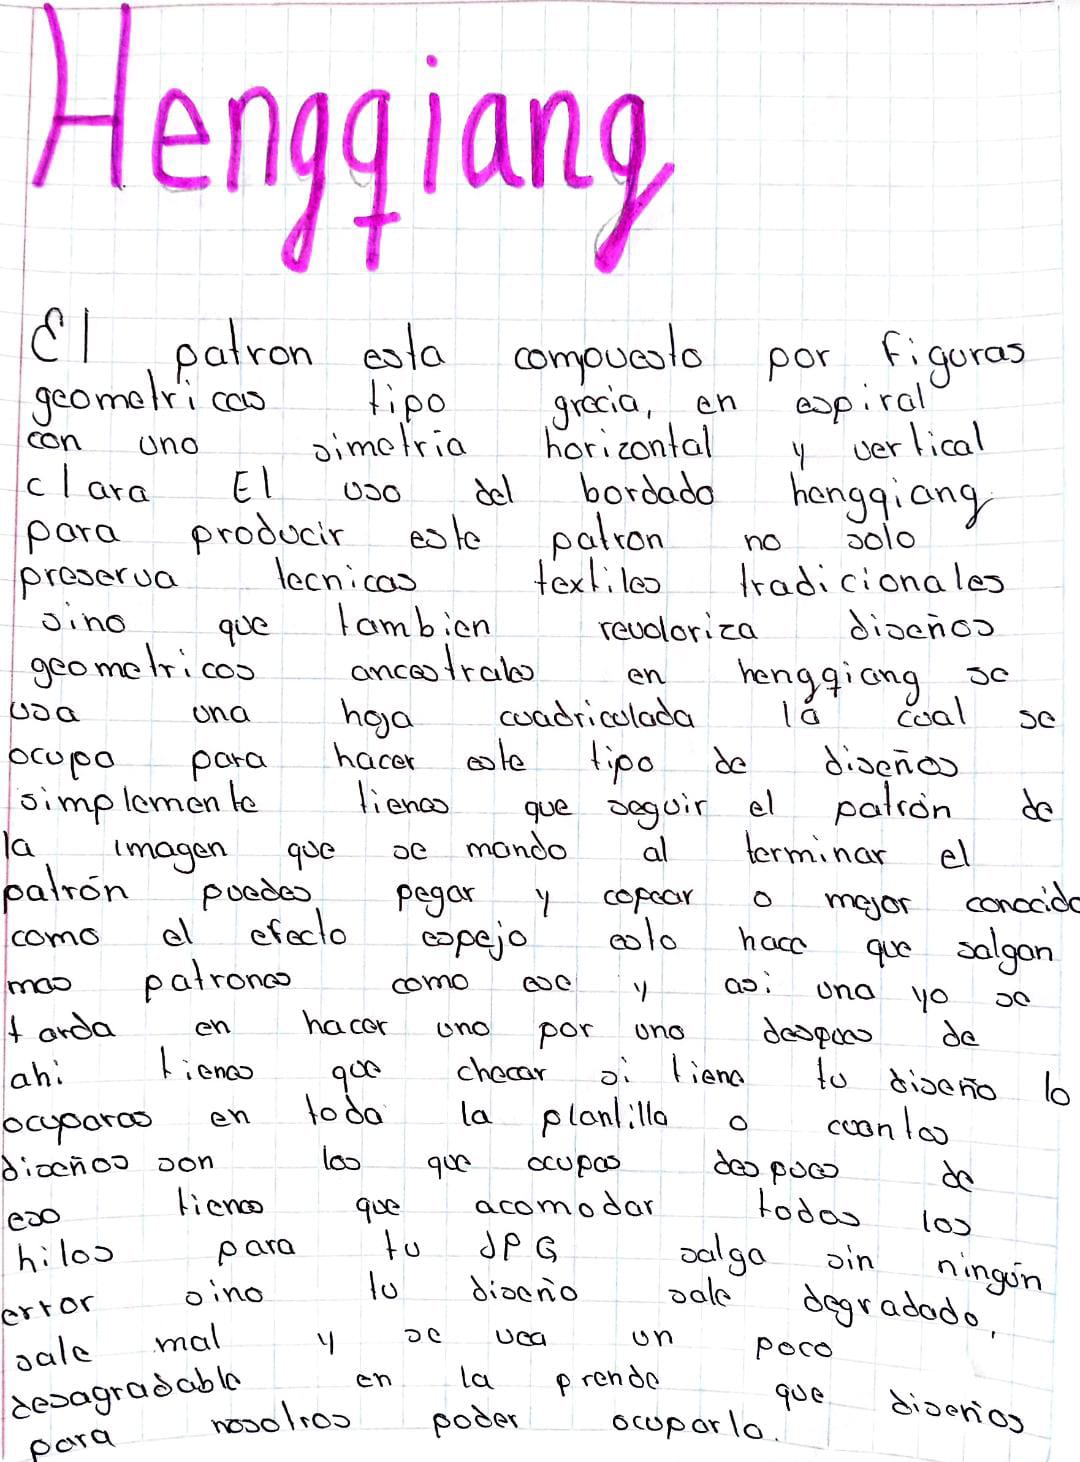 Hengqiang
El patron esta compuesto por figuras
geometricas tipo grecia, en espiral
con uno simetria horizontal y vertical
clara El uso del bordado hengqiang
para producir este patron no solo
preserva tecnicas textiles tradicionales
sino que tambien revaloriza diseños
geometricos ancestrales en hengqiang se
usa una hoja cuadriculada la cual se
ocupa para hacer este tipo de diseños
simplemente tienes que seguir el patrón de
la imagen que se mando al terminar el
patrón puedes pegar y copear o mejor conocido
como el efecto espejo esto hace que salgan
mas patrones como ese y asi una yo se
tarda en hacer uno por uno despues de
ahi tienes que checar si tiene tu diseño lo
ocuparas en toda la plantilla o cuantos
diseños son los que ocupas despues de
eso tienes que acomodar todos los
hilos para tu JPG salga sin ningún
error sino tu diseño sale degradado,
sale mal y se vea un poco
desagradable en la prenda que diseños
para nosotros poder ocuparlo.